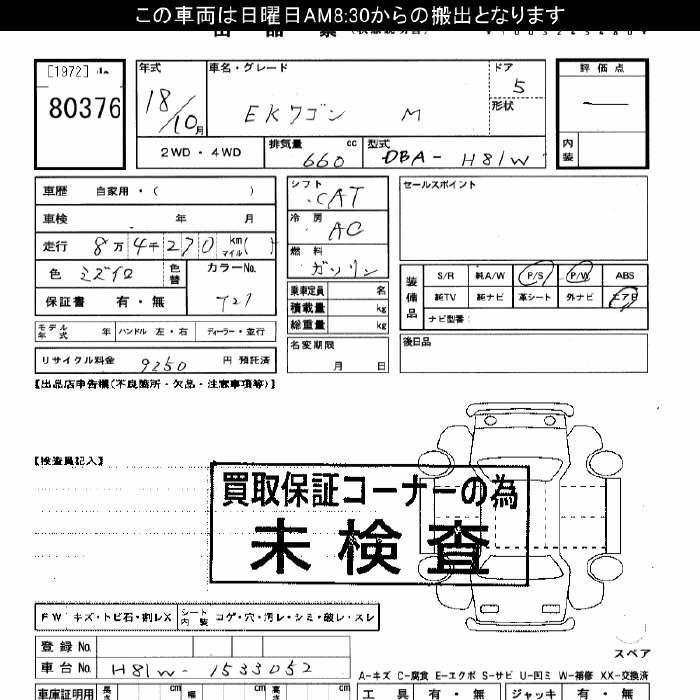 この車両は日曜日AM8:30からの搬出となります
[1972]
80376
年式
18/10月
車名・グレード
EKワゴン M
ドア
5
形状
評価点
内装
2WD・4WD
排気量 cc
660
型式
DBA-H81W
車歴 自家用・( )
車検 年 月
走行 8万4千270km マイル( )
色 ミズイロ 色替
カラーNo.
T27
保証書 有・無
シフト
CAT
冷房
AC
燃料
ガソリン
乗車定員 名
積載量 kg
総重量 kg
セールスポイント
装備品
S/R 純A/W P/S P/W ABS
純TV 純ナビ 革シート 外ナビ エアB
ナビ型番:
モデル年式 年 ハンドル 左・右 ディーラー・並行
名変期限
月 日
後日品
リサイクル料金 9250 円 預託済
【出品店申告欄(不良箇所・欠品・注意事項等)】
【検査員記入】
買取保証コーナーの為
未検査
FW キズ・トビ石・割レX
シート内装 コゲ・穴・汚レ・シミ・破レ・スレ
登録No.
車台No. H81W-1533052
スペア
A-キズ C-腐食 E-エクボ S-サビ U-凹ミ W-補修 XX-交換済
車庫証明用 長さ cm 幅 cm 高さ cm
工具 有・無 ジャッキ 有・無